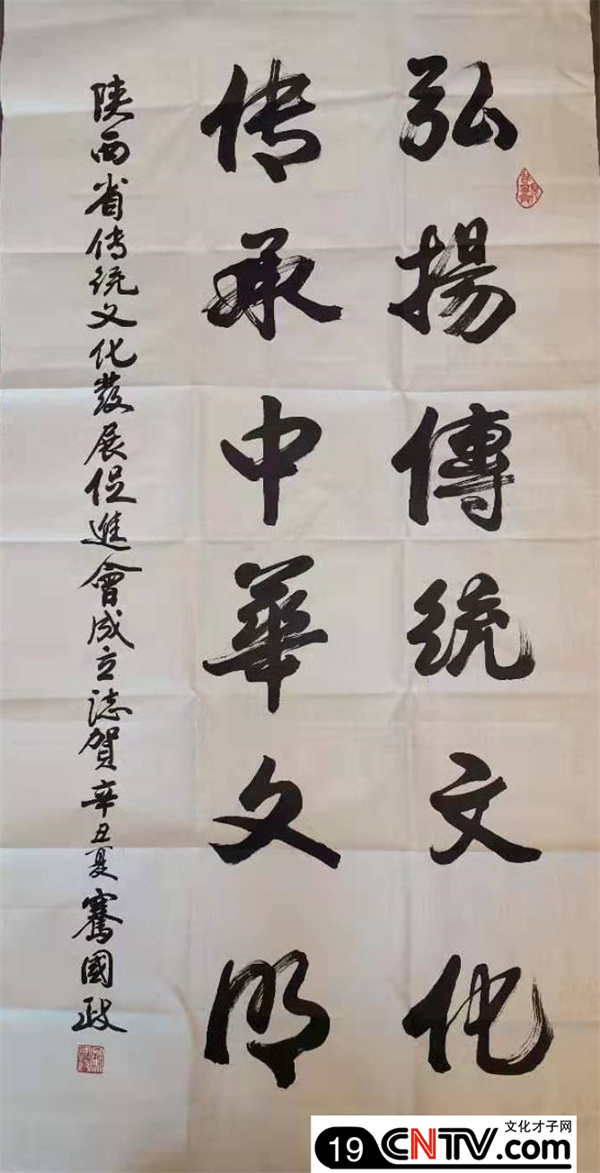 弘揚傳統文化
传承中華文明
陕西省传统文化發展促進會成立誌賀辛丑夏騫國政
文化才子网
19 CNTV.com